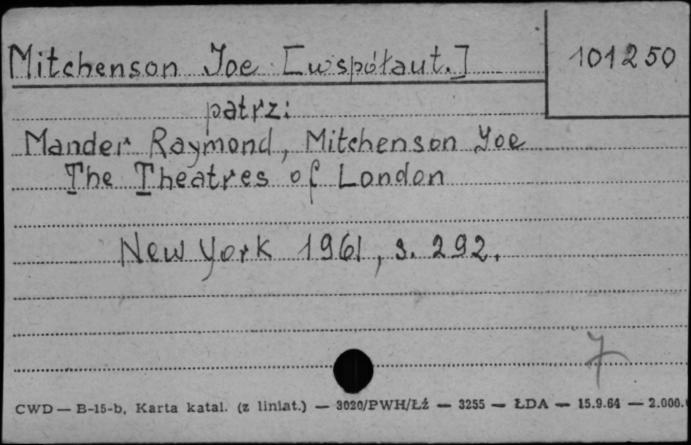 Mitchenson Joe [współaut.]
101250
patrz:
Mander Raymond, Mitchenson Joe
The Theatres of London
New York 1961, s. 292.
7
CWD — B-15-b, Karta katal. (z liniat.) — 3020/PWH/Łź — 3255 — ŁDA — 15.9.64 — 2.000.